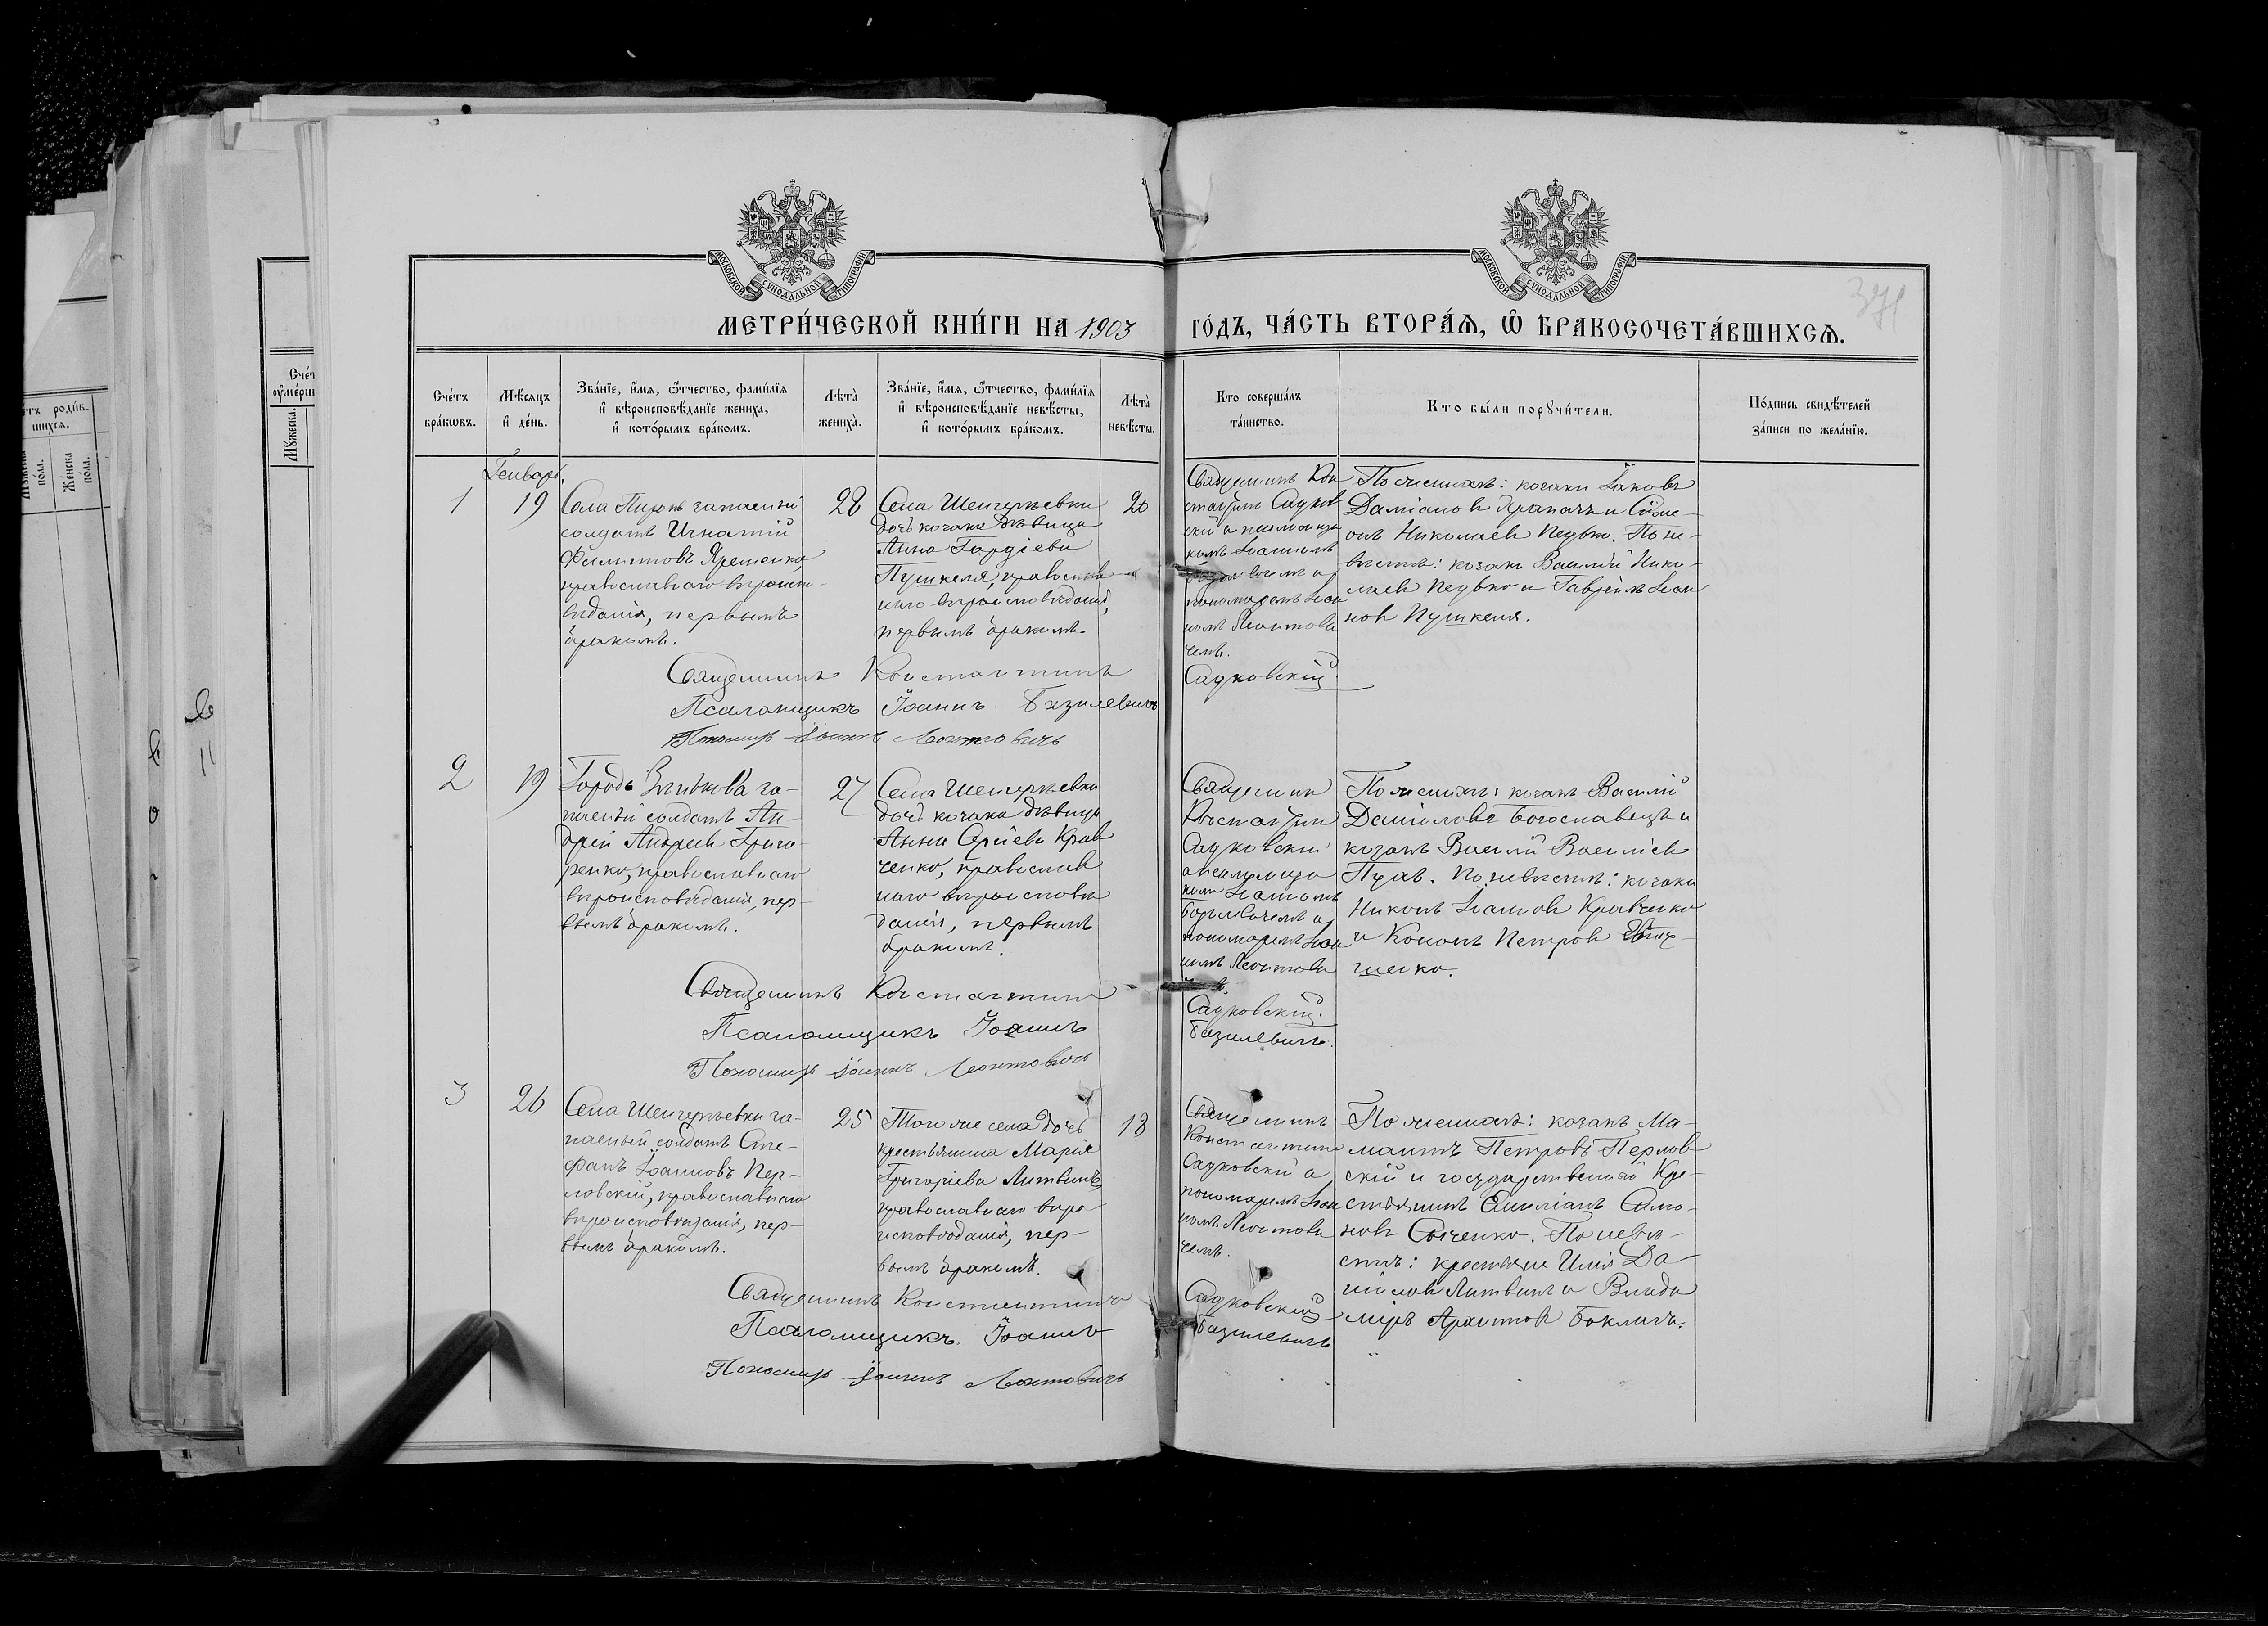 МОСКОВСКОЙ СѴНОДАЛЬНОЙ ТИПОГРАФІИ
МОСКОВСКОЙ СѴНОДАЛЬНОЙ ТИПОГРАФІИ
МЕТРИ́ЧЕСКОЙ КНИ́ГИ НА 1903
ГО́ДЪ, ЧА́СТЬ ВТОРА́Ѧ, Ѽ БРАКОСОЧЕТА́ВШИХСѦ.
Сче́тъ бра́кѡвъ.
Мѣ́сяцъ и҆ де́нь.
Зва́нїе, и҆́мѧ, ѻ҆́тчество, фами́лїѧ
и҆ вѣроисповѣ́данїе жениха̀,
и҆ кото́рымъ бра́комъ.
Лѣта̀
жениха̀.
Зва́нїе, и҆́мѧ, ѻ҆́тчество, фами́лїѧ
и҆ вѣроисповѣ́данїе невѣ́сты,
и҆ кото́рымъ бра́комъ.
Лѣта̀
невѣ́сты.
Кто совершáлъ
та́инство.
Кто бы́ли порꙋчи́тели.
По́дпись свидѣ́телей
за́писи по жела́нїю.
Генварь.
1
19
Села запасный
солдатъ Игнатій
Филиповъ Яременко,
православнаго вѣроиспо-
вѣданія, первымъ
бракомъ.
28
Села Шенгеріевки
дочь козака дѣвица
Анна Гордіева
Пушкеля, православ
наго вѣроисповѣданія,
первымъ бракомъ.
20
Священникъ Кон
стантинъ Садков
скій и псаломщи
комъ Іоанномъ
Базилевичемъ и
пономаремъ Іоан
номъ Леонтови
чемъ.
По женихѣ: козаки Іаковъ
Даміановъ и Симе-
онъ Николаевъ Педько. По не-
вѣстѣ: козаки Василій Нико-
лаевъ Педько и Гавріилъ Іоан
новъ Пушкеля.
Священникъ Константинъ Садковскій
Псаломщикъ Іоаннъ Базилевичъ
Пономарь Іоаннъ Леонтовичъ
2
19
Города Зѣнькова за-
пасный солдатъ Ан-
дрей Андреевъ Григо-
ренко, православнаго
вѣроисповѣданія, пер-
вымъ бракомъ.
27
Села Шенгеріевки
дочь козака дѣвица
Анна Сергіева Крав
ченко, православ
наго вѣроисповѣ
данія, первымъ
бракомъ.
Священникъ
Константинъ
Садковскій
и псаломщи
комъ Іоанномъ
Базилевичемъ и
пономаремъ Іоан
номъ Леонтови
По женихѣ: козакъ Василій
Даніиловъ Богославецъ и
козакъ Василій Васильевъ
По невѣстѣ: козаки
Никонъ Іоанновъ Кравченко
и Кононъ Петровъ
Священникъ Константинъ Садковскій.
Псаломщикъ Іоаннъ Базилевичъ.
Пономарь Іоаннъ Леонтовичъ
3
26
Села Шенгеріевки за-
пасный солдатъ Сте-
фанъ Іоанновъ Пер-
ловскій, православнаго
вѣроисповѣданія, пер-
вымъ бракомъ.
25
Того же села дочь
крестьянина Марія
Григоріева Литвинъ,
православнаго вѣро
исповѣданія, пер-
вымъ бракомъ.
18
Священникъ
Константинъ
Садковскій и
пономаремъ Іоан
номъ Леонтови
чемъ.
По женихѣ: козакъ Ма-
мантъ Петровъ Перлов
скій и государственный Кре-
стьянинъ Емиліанъ Симо-
новъ Сыченко. По невѣ-
стѣ: крестьяне Илія Да-
ніиловъ Литвинъ и Влади
міръ Боклагъ.
Священникъ Константинъ Садковскій
Псаломщикъ. Іоаннъ Базилевичъ
Пономарь Іоаннъ Леонтовичъ